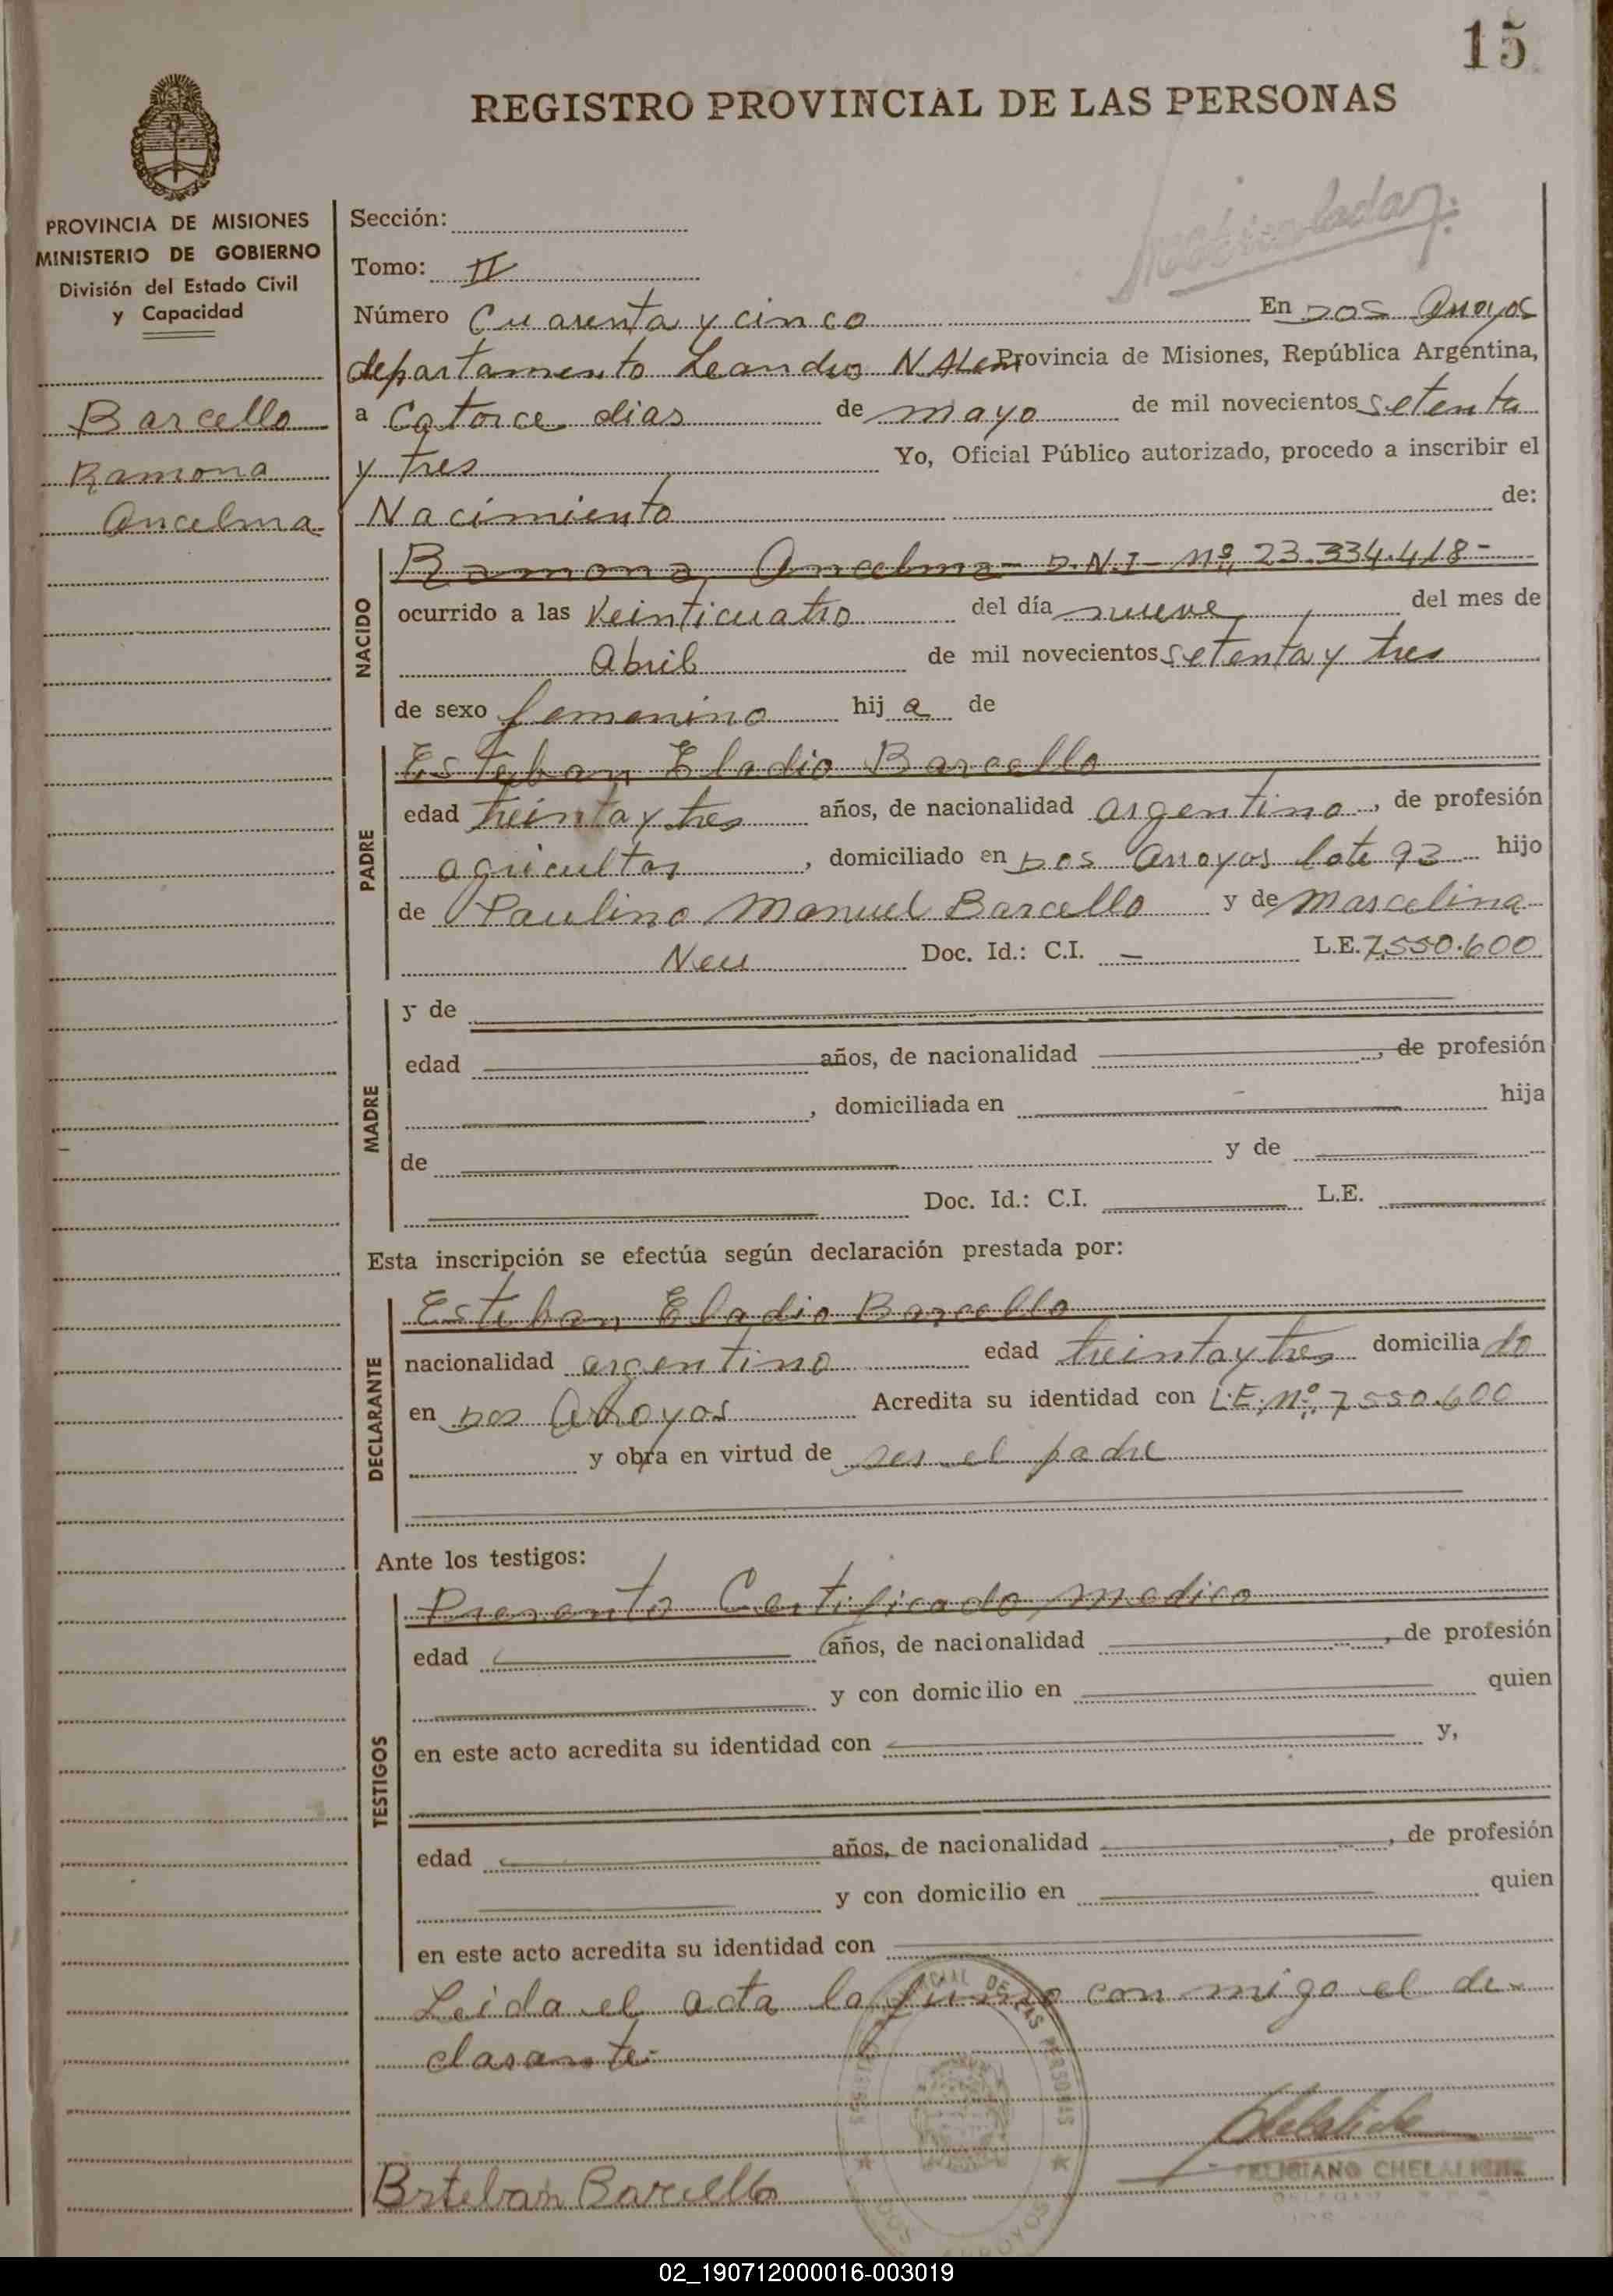 15
REGISTRO PROVINCIAL DE LAS PERSONAS
PROVINCIA DE MISIONES
MINISTERIO DE GOBIERNO
División del Estado Civil
y Capacidad
Barcello
Ramona
Ancelma
Sección:
Tomo: II
Número Cuarenta y cinco En Dos Arroyos
departamento Leandro N. Alem Provincia de Misiones, República Argentina,
a Catorce dias de mayo de mil novecientos setenta
y tres Yo, Oficial Público autorizado, procedo a inscribir el
Nacimiento de:
NACIDO
Ramona Ancelma - D.N.I - Nº, 23.334.418 -
ocurrido a las Veinticuatro del día nueve del mes de
Abril de mil novecientos setenta y tres
de sexo femenino hij a de
PADRE
Esteban Eladio Barcello
edad treinta y tres años, de nacionalidad argentino, de profesión
agricultor, domiciliado en Dos Arroyos lote 93 hijo
de Paulino Manuel Barcello y de Marcelina
Neu Doc. Id.: C.I. — L.E. 7.550.600
MADRE
y de
edad años, de nacionalidad , de profesión
, domiciliada en hija
de y de
Doc. Id.: C.I. L.E.
Esta inscripción se efectúa según declaración prestada por:
DECLARANTE
Esteban Eladio Barcello
nacionalidad argentino edad treinta y tres domicilia do
en Dos Arroyos Acredita su identidad con L.E. Nº, 7.550.600
y obra en virtud de ser el padre
Ante los testigos:
TESTIGOS
Presento Certificado medico
edad años, de nacionalidad , de profesión
y con domicilio en quien
en este acto acredita su identidad con y,
edad años, de nacionalidad , de profesión
y con domicilio en quien
en este acto acredita su identidad con
Leida el acta la firma con migo el de-
clarante.
Esteban Barcello
FELICIANO CHELALICHE
DOS ARROYOS
02_190712000016-003019